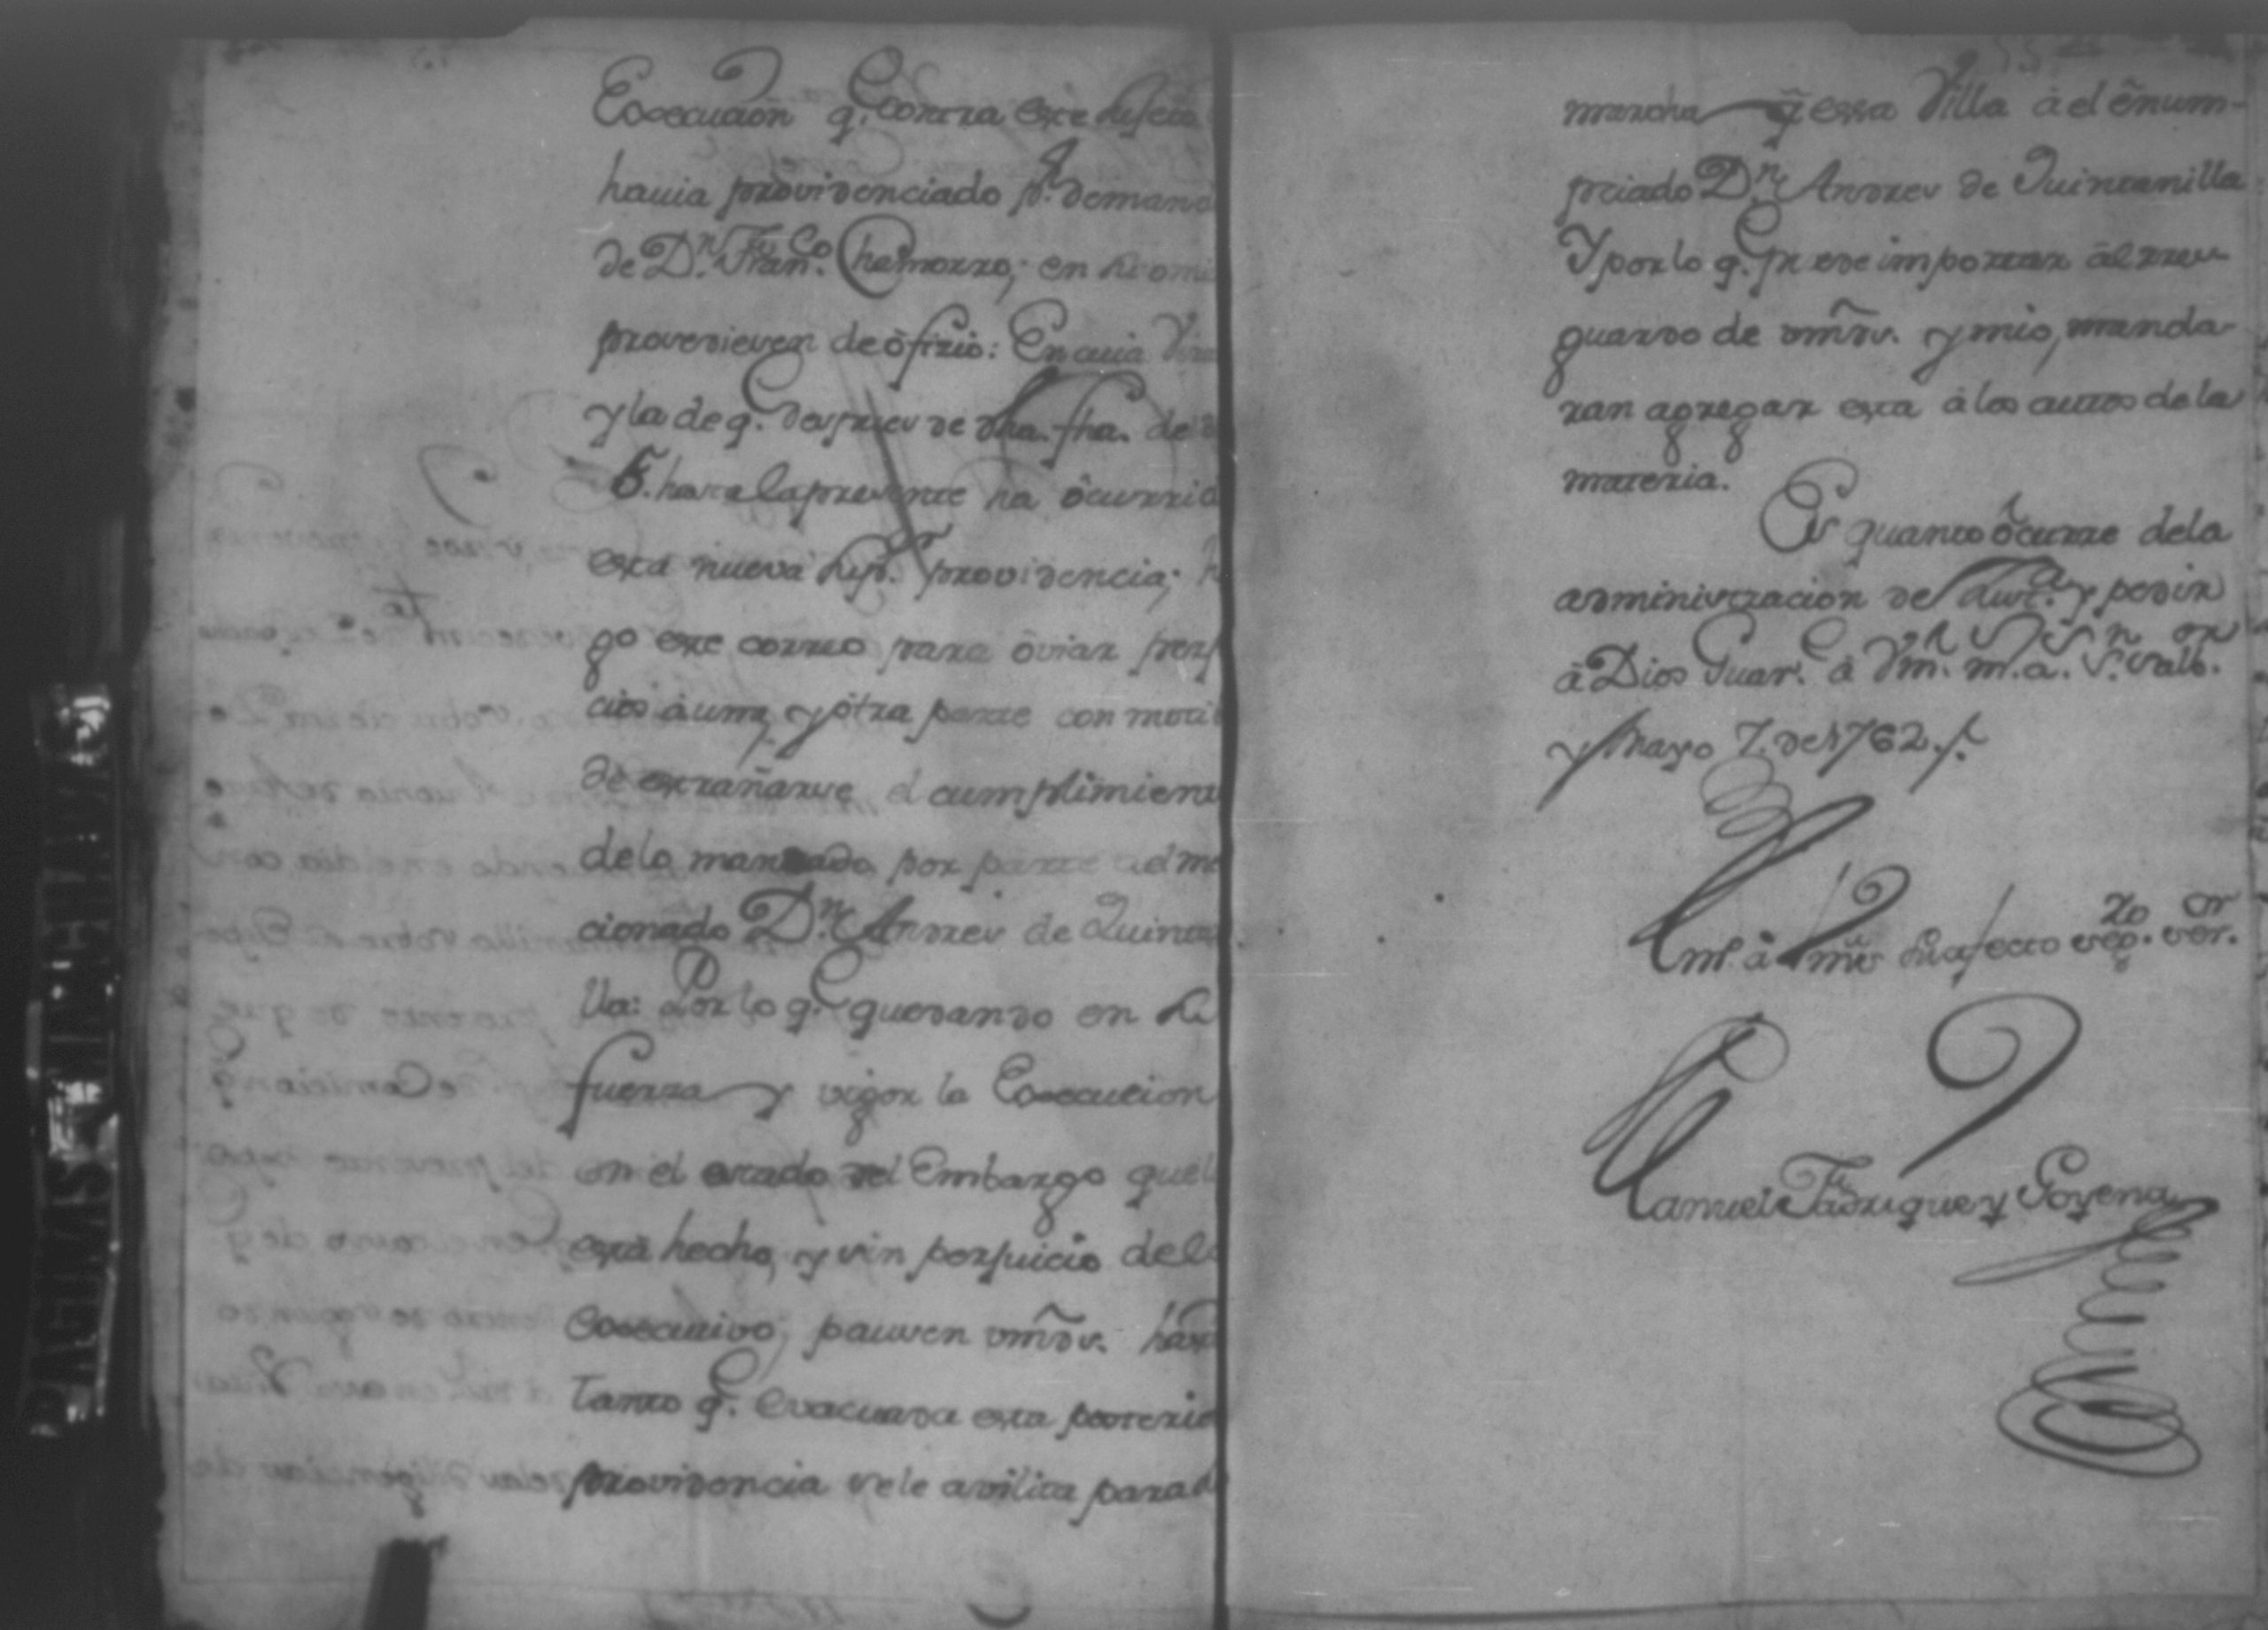 Execucion q.e contra este sujeto
havia providenciado p.r demand
de D.n Fran.co Chamorro; en su omi
provediesen de ôfizio: En cuia
y la de q.e despues de dha. fha. de
5. hasta la presente ha ôcurrid
esta nueva sup.or providencia;
go este correo para ôviar perj
cios à una, y ôtra parte con moti
de extrañarse el cumplimient
de lo mandado por parte del me
cionado D.n Andres de Quintan
lla: Por lo q.e quedando en su
fuerza y vigor la Execucion
en el estado del Embargo que l
está hecho, y sin perjuicio de l
executivo; pausen vm̃ds. hás
Tanto q.e evacuada esta posterio
providencia se le avilita para
marcha q̃ essa Villa à el ênum-
priado D.n Andres de Quintanilla
Y por lo q.e puede importar âl res
guardo de vm̃ds. y mio, manda-
ran agregar esta à los autos de la
materia.
Es quanto ôcurre de la
administracion de Just.a y pedir
à Dios Guar.e à Vm̃s. m.s a.s S.n Salb.or
y Mayo 7. de 1762./.
Bm.e à Vm̃s su afecto seg.o ser.or
Manuel Fadrique y Goyena